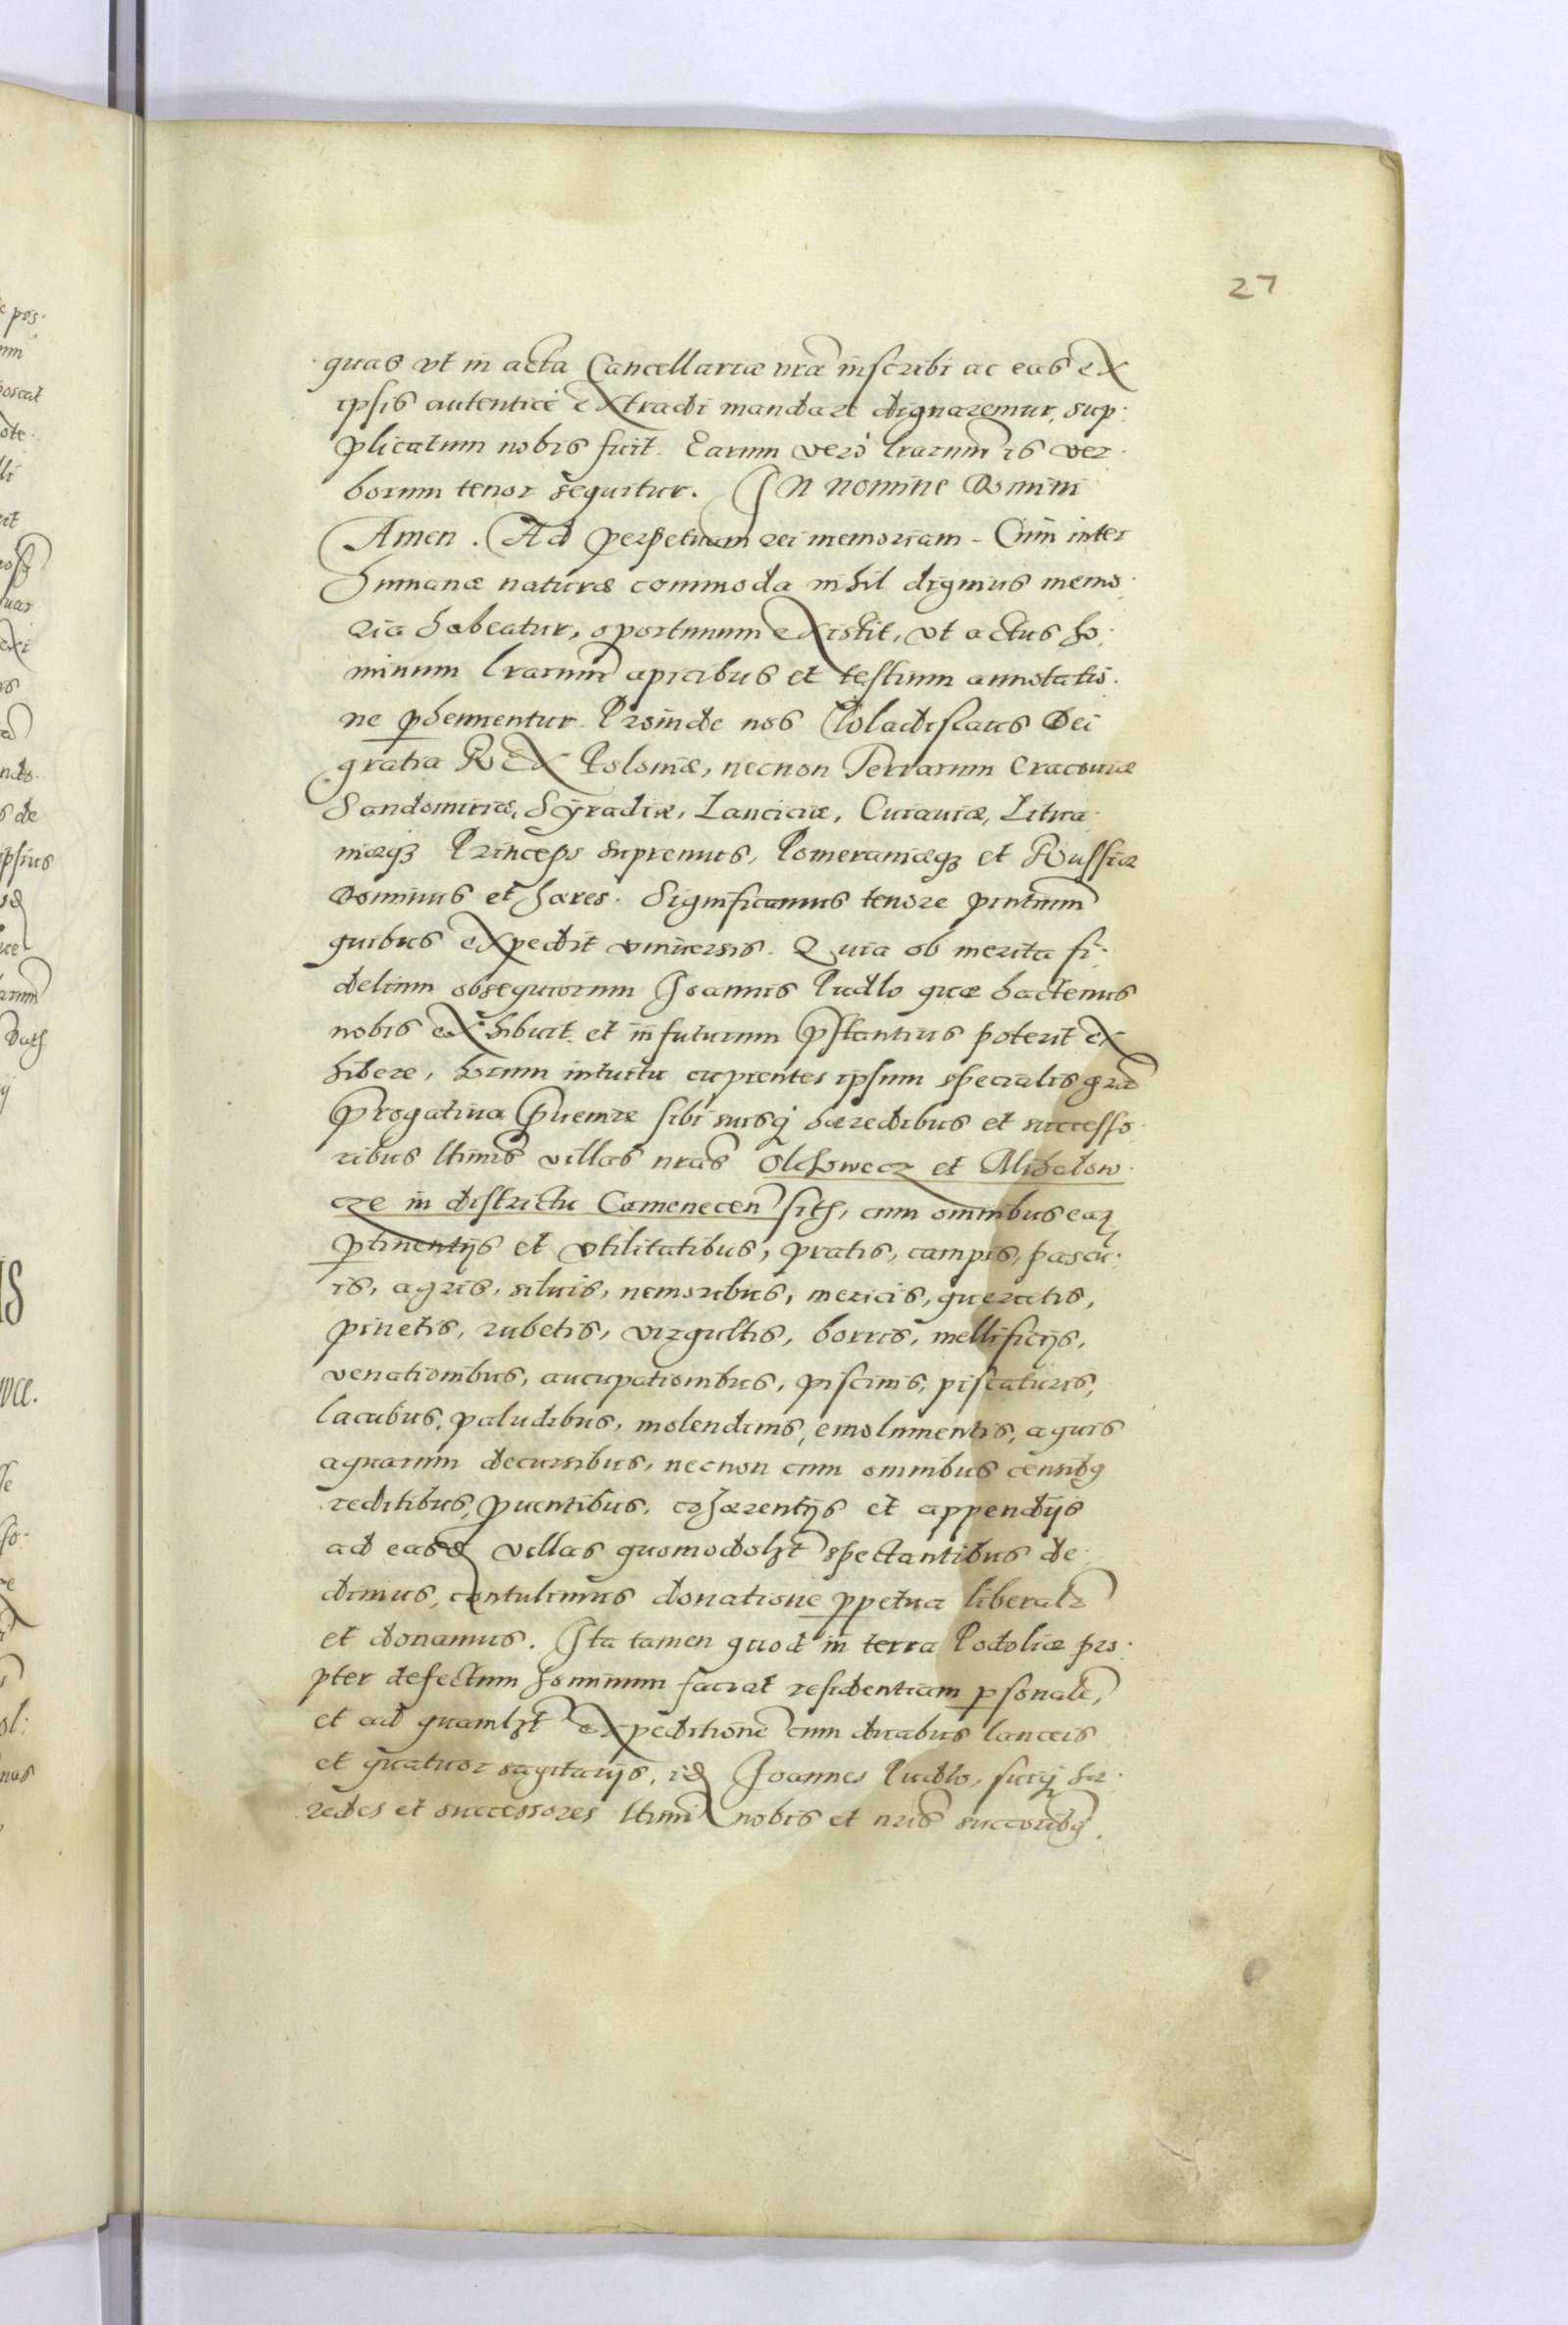 27
quas vt in acta Cancellariæ nræ inscribi ac eas ex
ipsis autenticè extradi mandare dignaremur, sup:
plicatum nobis fuit. Earum verò lrarum is ver:
borum tenor sequitur. In nomine Domini
Amen. Ad perpetuam rei memoriam. Cum inter
humanæ naturæ commoda nihil dignius memo:
ria habeatur, oportunum existit, vt actus ho:
minum lrarum apicibus et testium annotatis.
ne phennentur. Proinde nos Wladislaus Dei
gratia Rex Poloniæ, necnon Terrarum Cracouiæ
Sandomiriæ, Syradiæ, Lanciciæ, Cuiauiæ, Litua:
niæq3 Princeps supremus, Pomeraniæq3 et Russiæ
Dominus et hæres. Significamus tenore pntium
quibus expedit vniuersis. Quia ob merita fi:
delium obsequiorum Joannis Pudlo quæ hactenus
nobis exhibuit et in futurum pstantius poterit ex
hibere, horum intuitu cupientes ipsum specialis græ
progatiua puenire sibi suisq hæredibus et successo:
ribus ltimis villas nras Olchowecz et Mihalow:
cze in districtu Camenecen sith, cum omnibus eaR
ptinentijs et vtilitatibus, pratis, campis, pascu:
is, agris, siluis, nemoribus, mericis, quercetis,
pinetis, rubetis, virgultis, borris, mellificijs,
venationibus, aucupationibus, piscinis, piscaturis,
lacubus, paludibus, molendinis, emolumentis, aquis
aquarum decursibus, necnon cum omnibus censibq
reditibus, puentibus, cohærentijs et appendijs
ad easd villas quomodolzt spectantibus de:
dimus, contulimus donatione ppetua liberalr
et donamus. Ita tamen quod in terra Podoliæ pro:
pter defectum hominum faciat residentiam psonale,
et ad quamlzt expeditione cum duabus lanceis
et quatuor sagitarijs, id Joannes Pudlo, suiq hæ:
redes et successores ltimi nobis et nris succoribq.